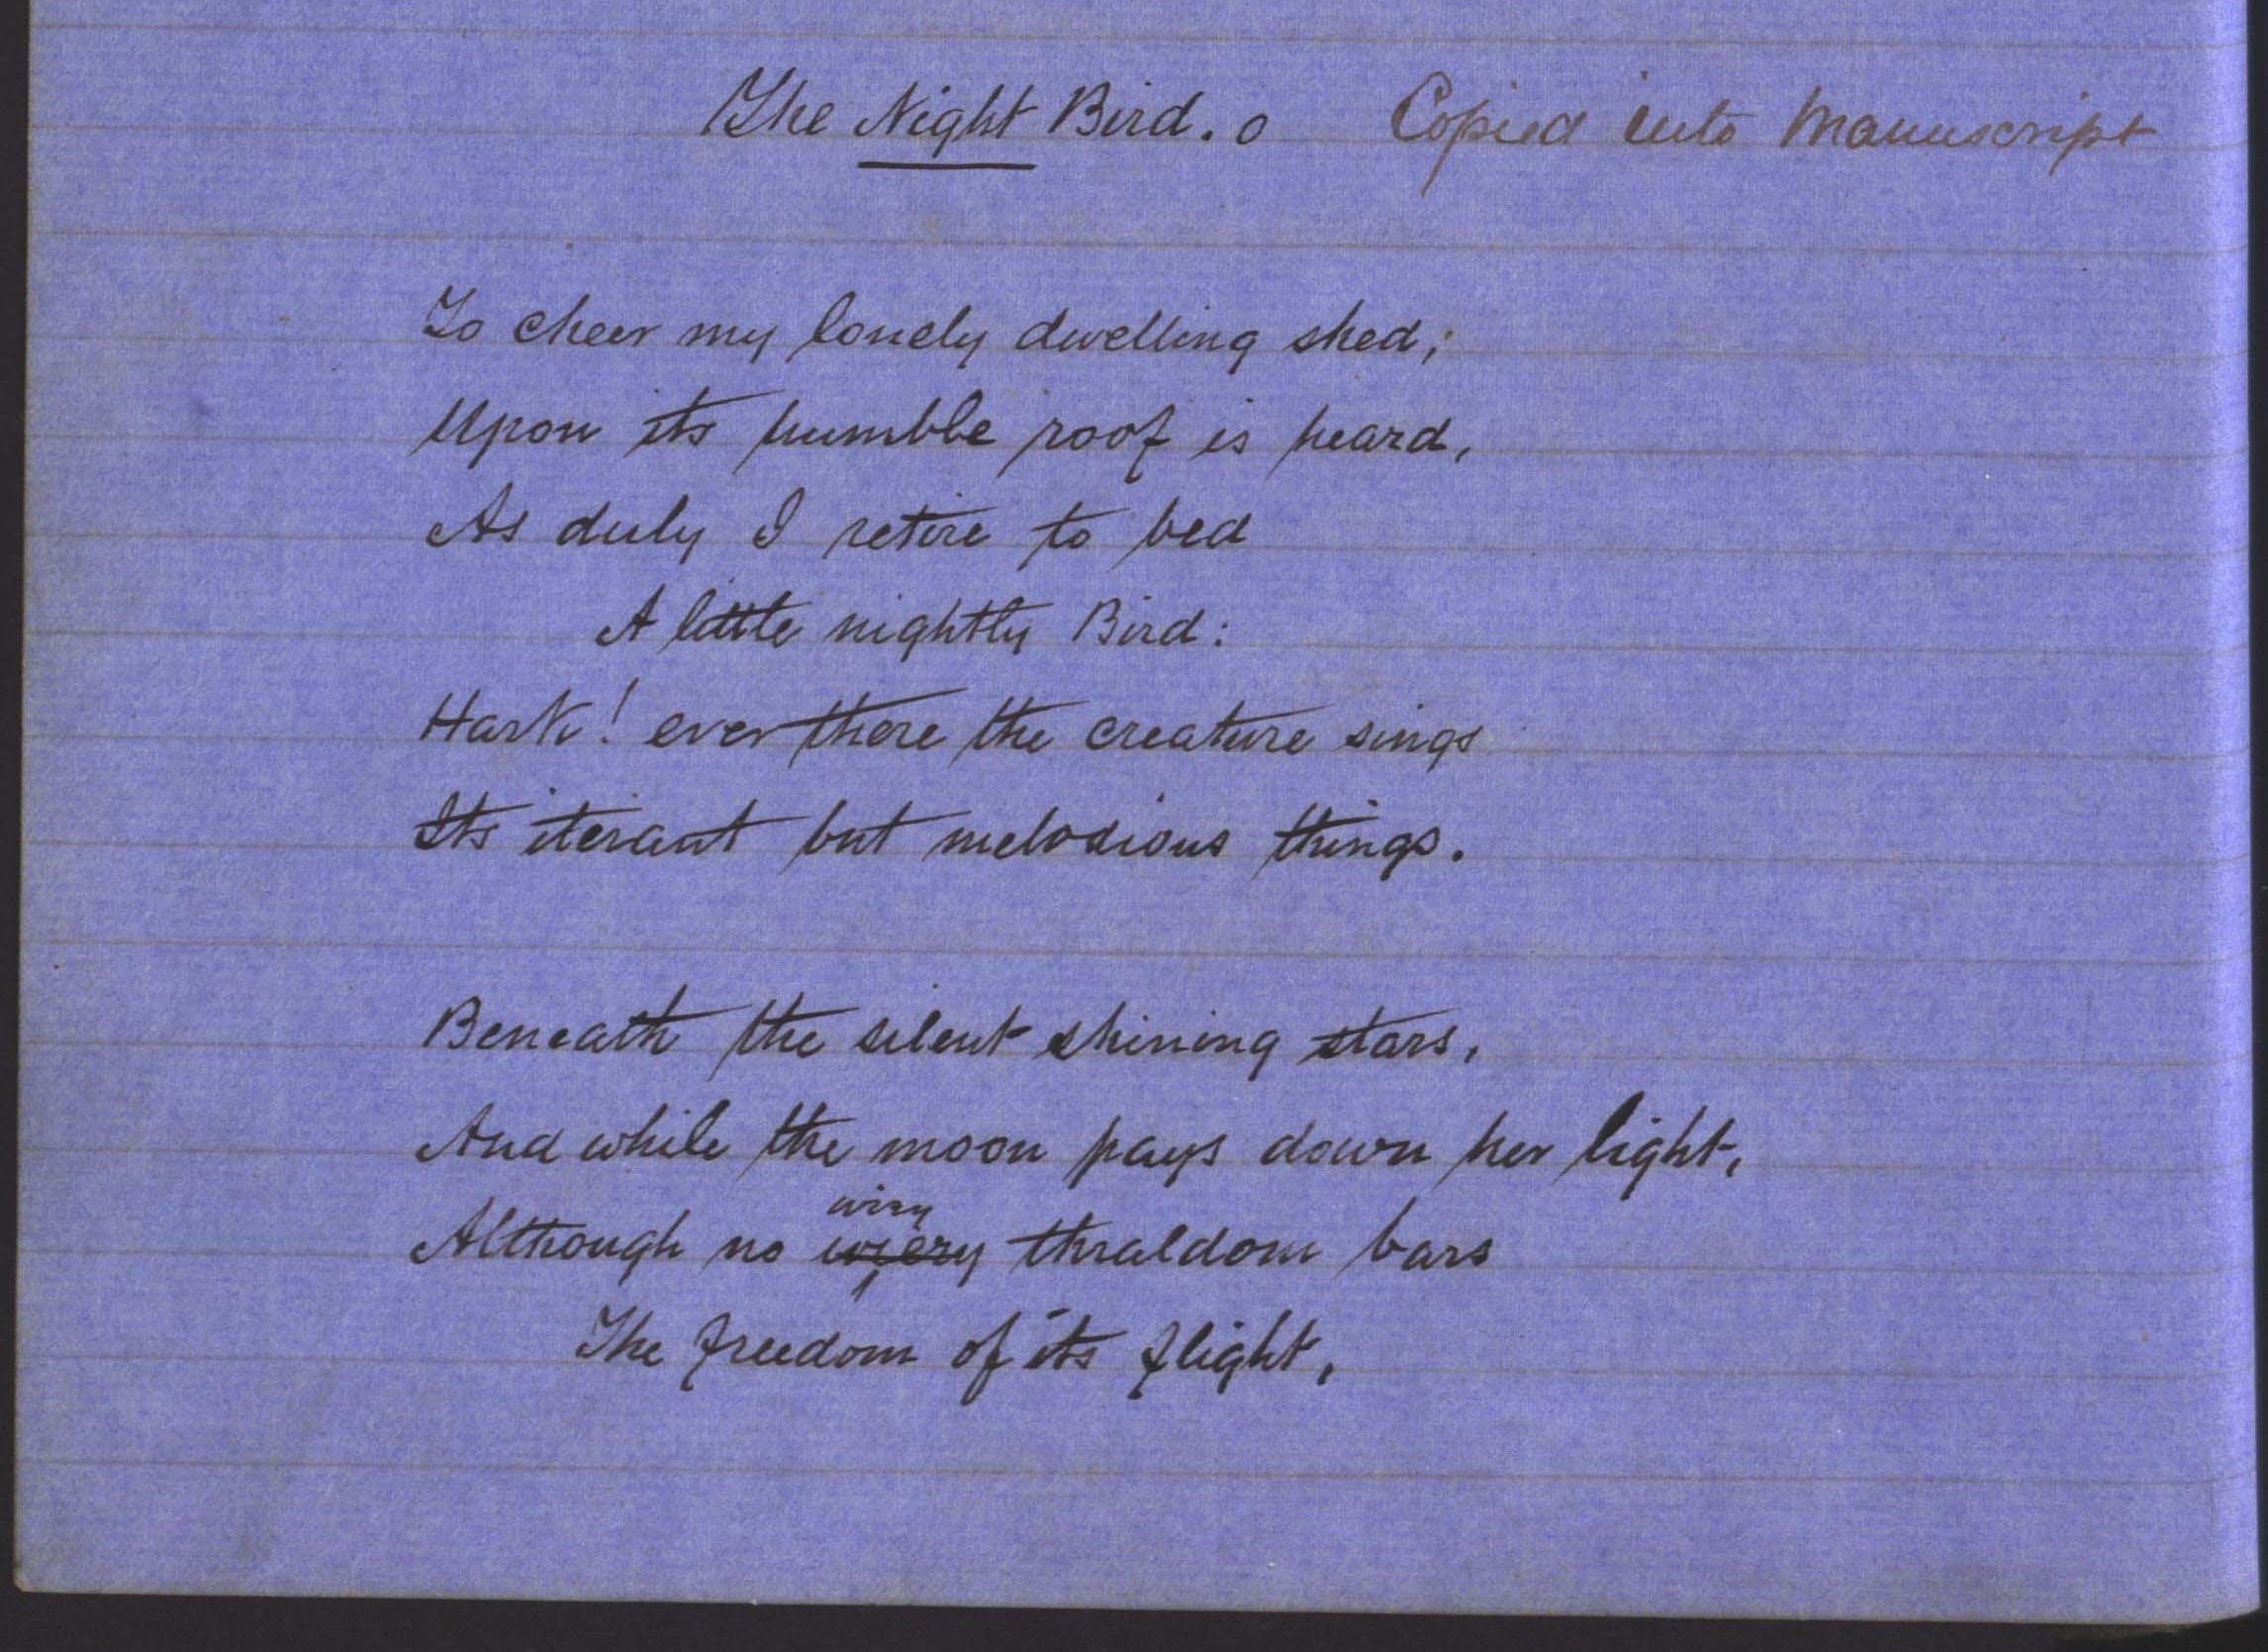 The Night Bird. o Copied into Manuscript
To cheer my lonely dwelling shed;
Upon its humble roof is heard,
As duly I retire to bed
A little nightly Bird:
Hark! ever there the creature sings
Its iterant but melodious things.
Beneath the silent shining stars,
And while the moon pays down her light,
wiry
Although no wiery thraldom bars
The freedom of its flight,